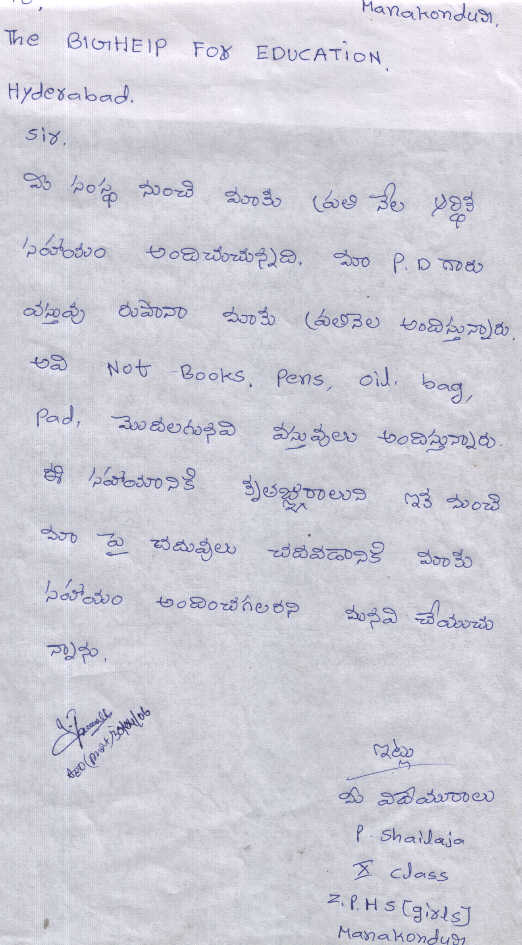 To,
Manakondur.
The BIGHEIP FOR EDUCATION.
Hyderabad.
Sir.
మీ సంస్థ నుంచి మాకు ప్రతి నెల ఆర్థిక
సహాయం అందిచుచున్నది. మా P.D గారు
వస్తువు రుపానా మాకు ప్రతినెల అందిస్తున్నారు.
అవి Not Books, Pens, oil. bag,
Pad, మొదలగునవి వస్తువులు అందిస్తున్నారు.
ఈ సహాయానికి కృతజ్ఞురాలుని ఇక నుంచి
మా పై చదువులు చదవడానికి మాకు
సహాయం అందించగలరని మనవి చేయుచు
న్నాను.
20/04/06
ఇట్లు
మీ విదేయురాలు
P. Shailaja
X class
Z.P.H.S [girls]
Manakondur